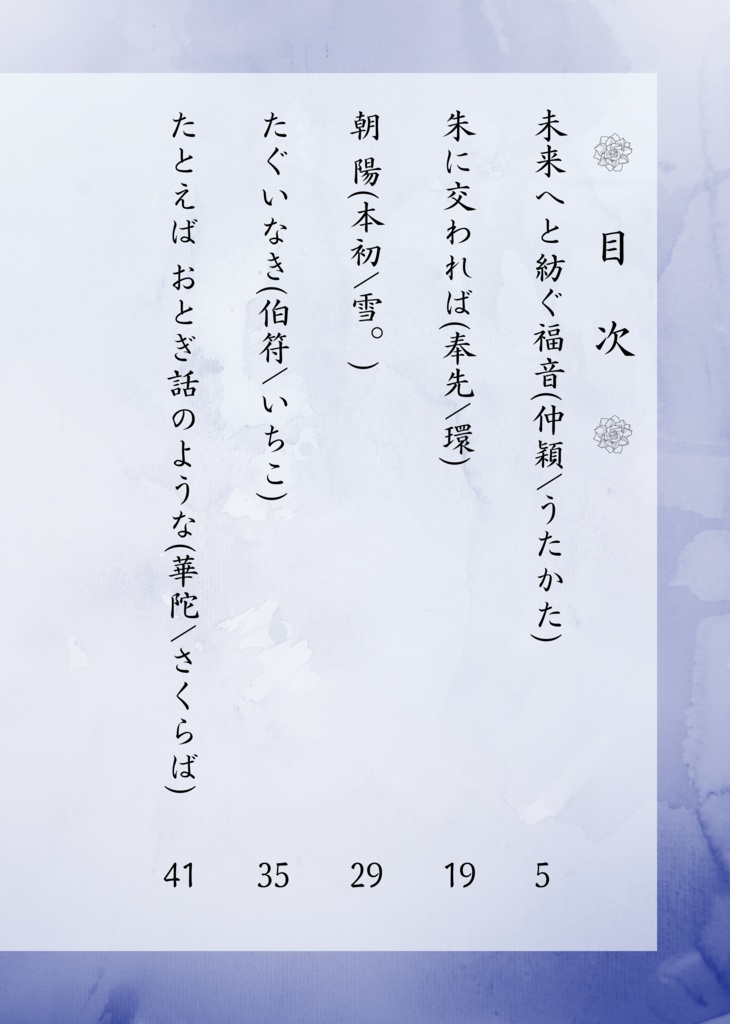 目次
未来へと紡ぐ福音(仲穎/うたかた) 5
朱に交われば(奉先/環) 19
朝陽(本初/雪。) 29
たぐいなき(伯符/いちこ) 35
たとえば おとぎ話のような(華陀/さくらば) 41